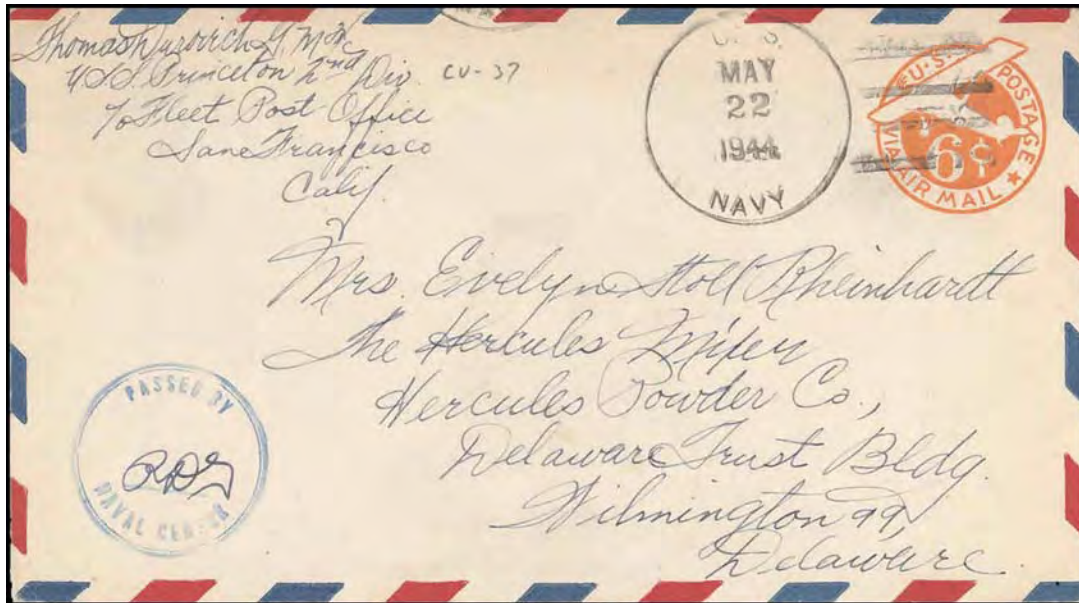 Thomas G. M 3/c
U.S.S. Princeton 2nd Div. CV-37
℅ Fleet Post Office
Sane Francisco
Calif.
U.S.
MAY
22
1944
NAVY
U.S. POSTAGE
6¢
VIA AIR MAIL
Mrs. Evelyn Stoll Rheinhardt
The Hercules Mixer
Hercules Powder Co.,
Delaware Trust Bldg.
Wilmington 99,
Delaware
PASSED BY
NAVAL CENSOR